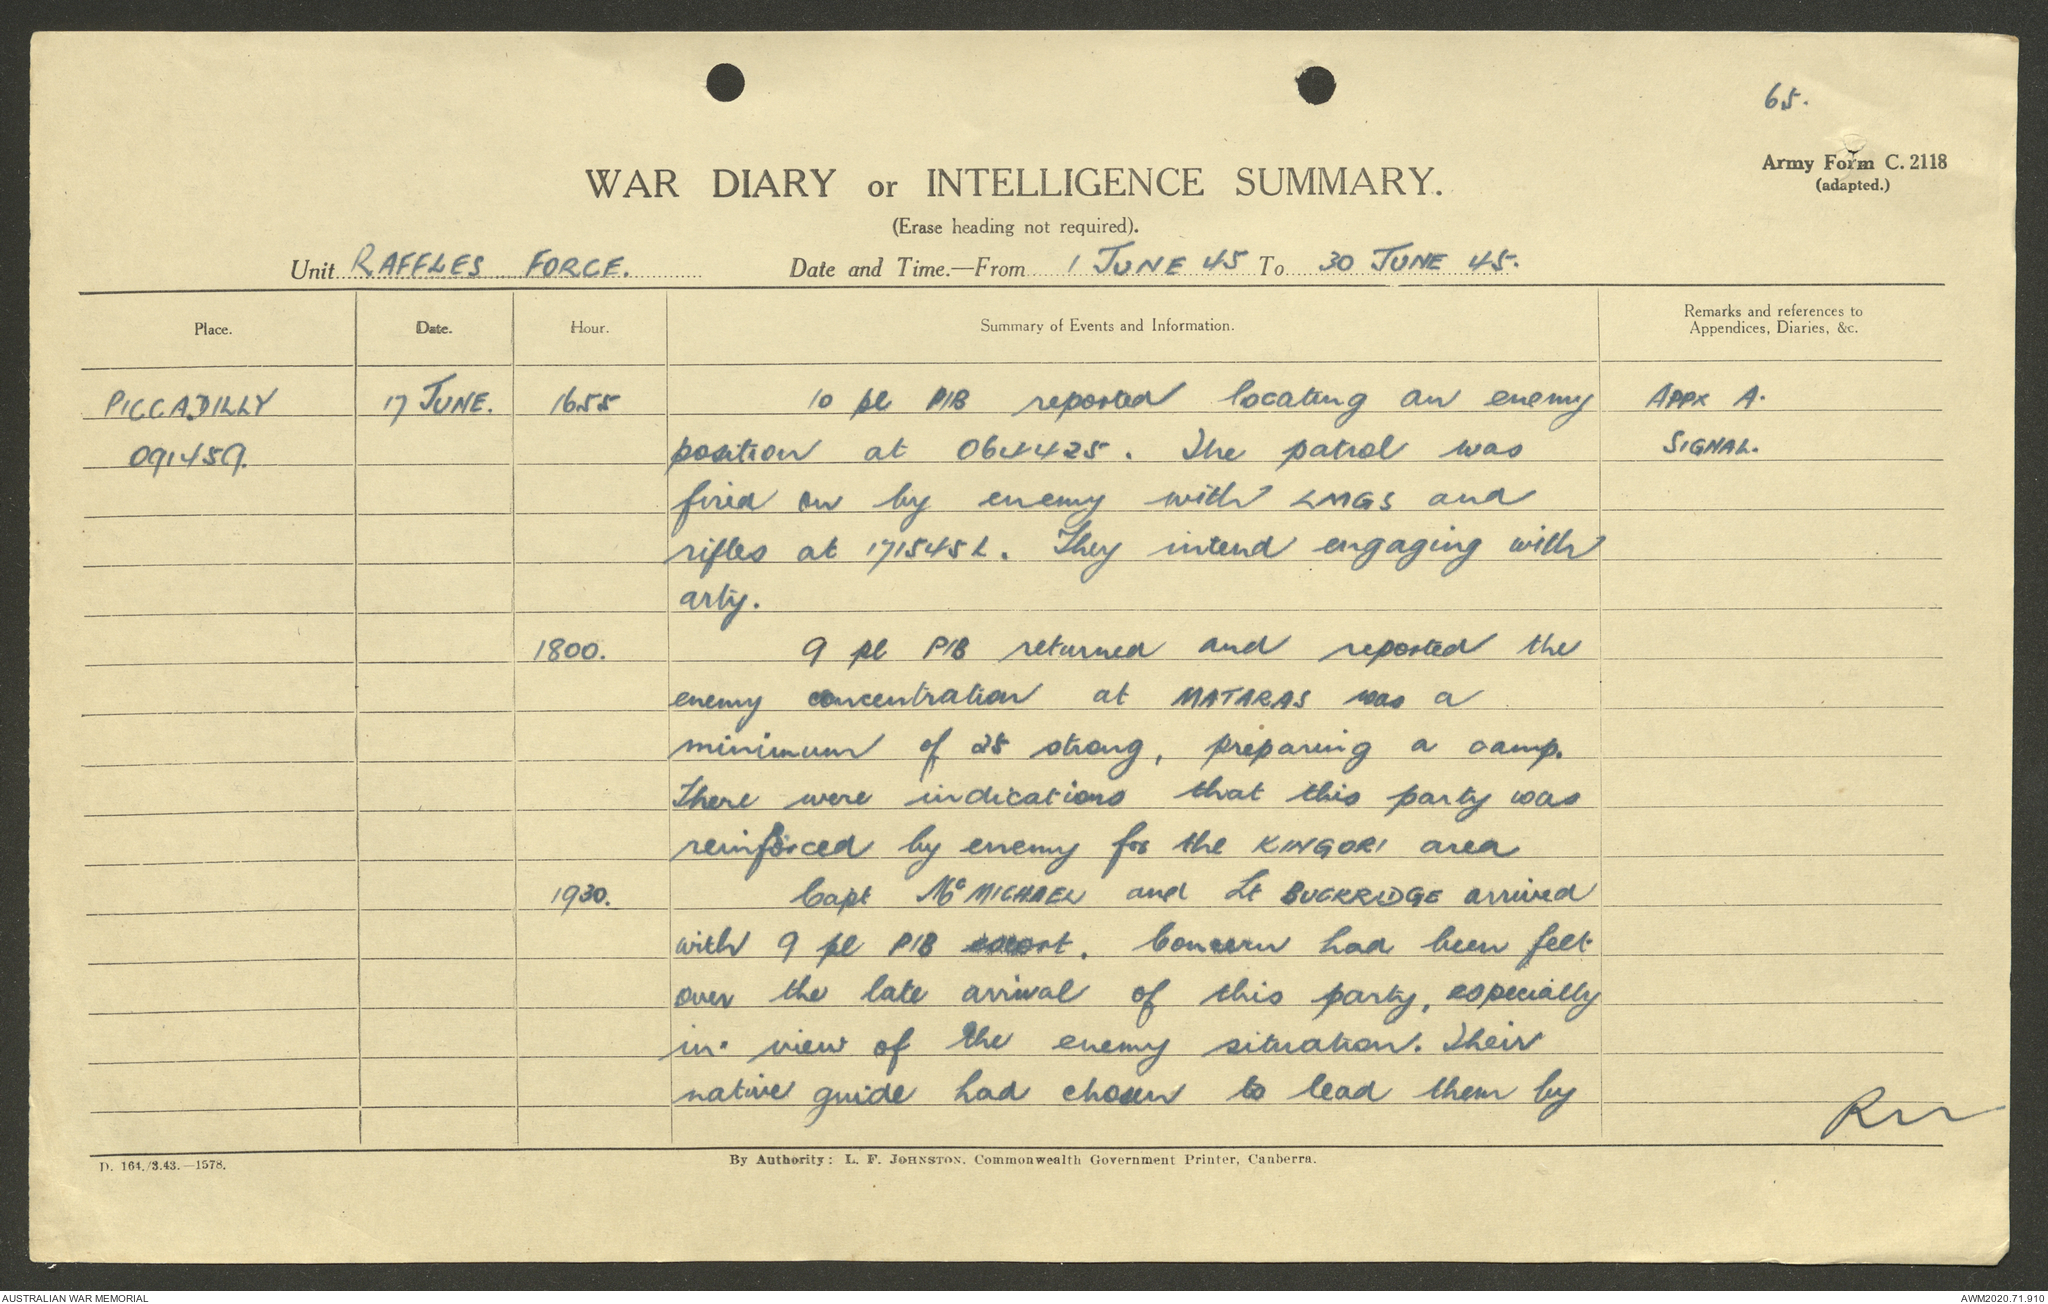 65.
Army Form C. 2118
(adapted.)
WAR DIARY or INTELLIGENCE SUMMARY.
(Erase heading not required).
Unit RAFFLES FORCE. Date and Time.—From 1 JUNE 45 To 30 JUNE 45.
Place. Date. Hour. Summary of Events and Information. Remarks and references to Appendices, Diaries, &c.
PICCADILLY 17 JUNE. 1655 10 pl PIB reported locating an enemy APPX A.
091459. position at 064425. The patrol was SIGNAL.
fired on by enemy with LMGS and
rifles at 171545L. They intend engaging with
arty.
1800. 9 pl PIB returned and reported the
enemy concentration at MATARAS was a
minimum of 25 strong, preparing a camp.
There were indications that this party was
reinforced by enemy for the KINGORI area
1930. Capt McMICHAEL and Lt BUCKRIDGE arrived
with 9 pl PIB escort. Concern had been felt
over the late arrival of this party, especially
in view of the enemy situation. Their
native guide had chosen to lead them by
D. 164./3.43.—1578.
By Authority: L. F. JOHNSTON, Commonwealth Government Printer, Canberra.
AUSTRALIAN WAR MEMORIAL
AWM2020.71.910